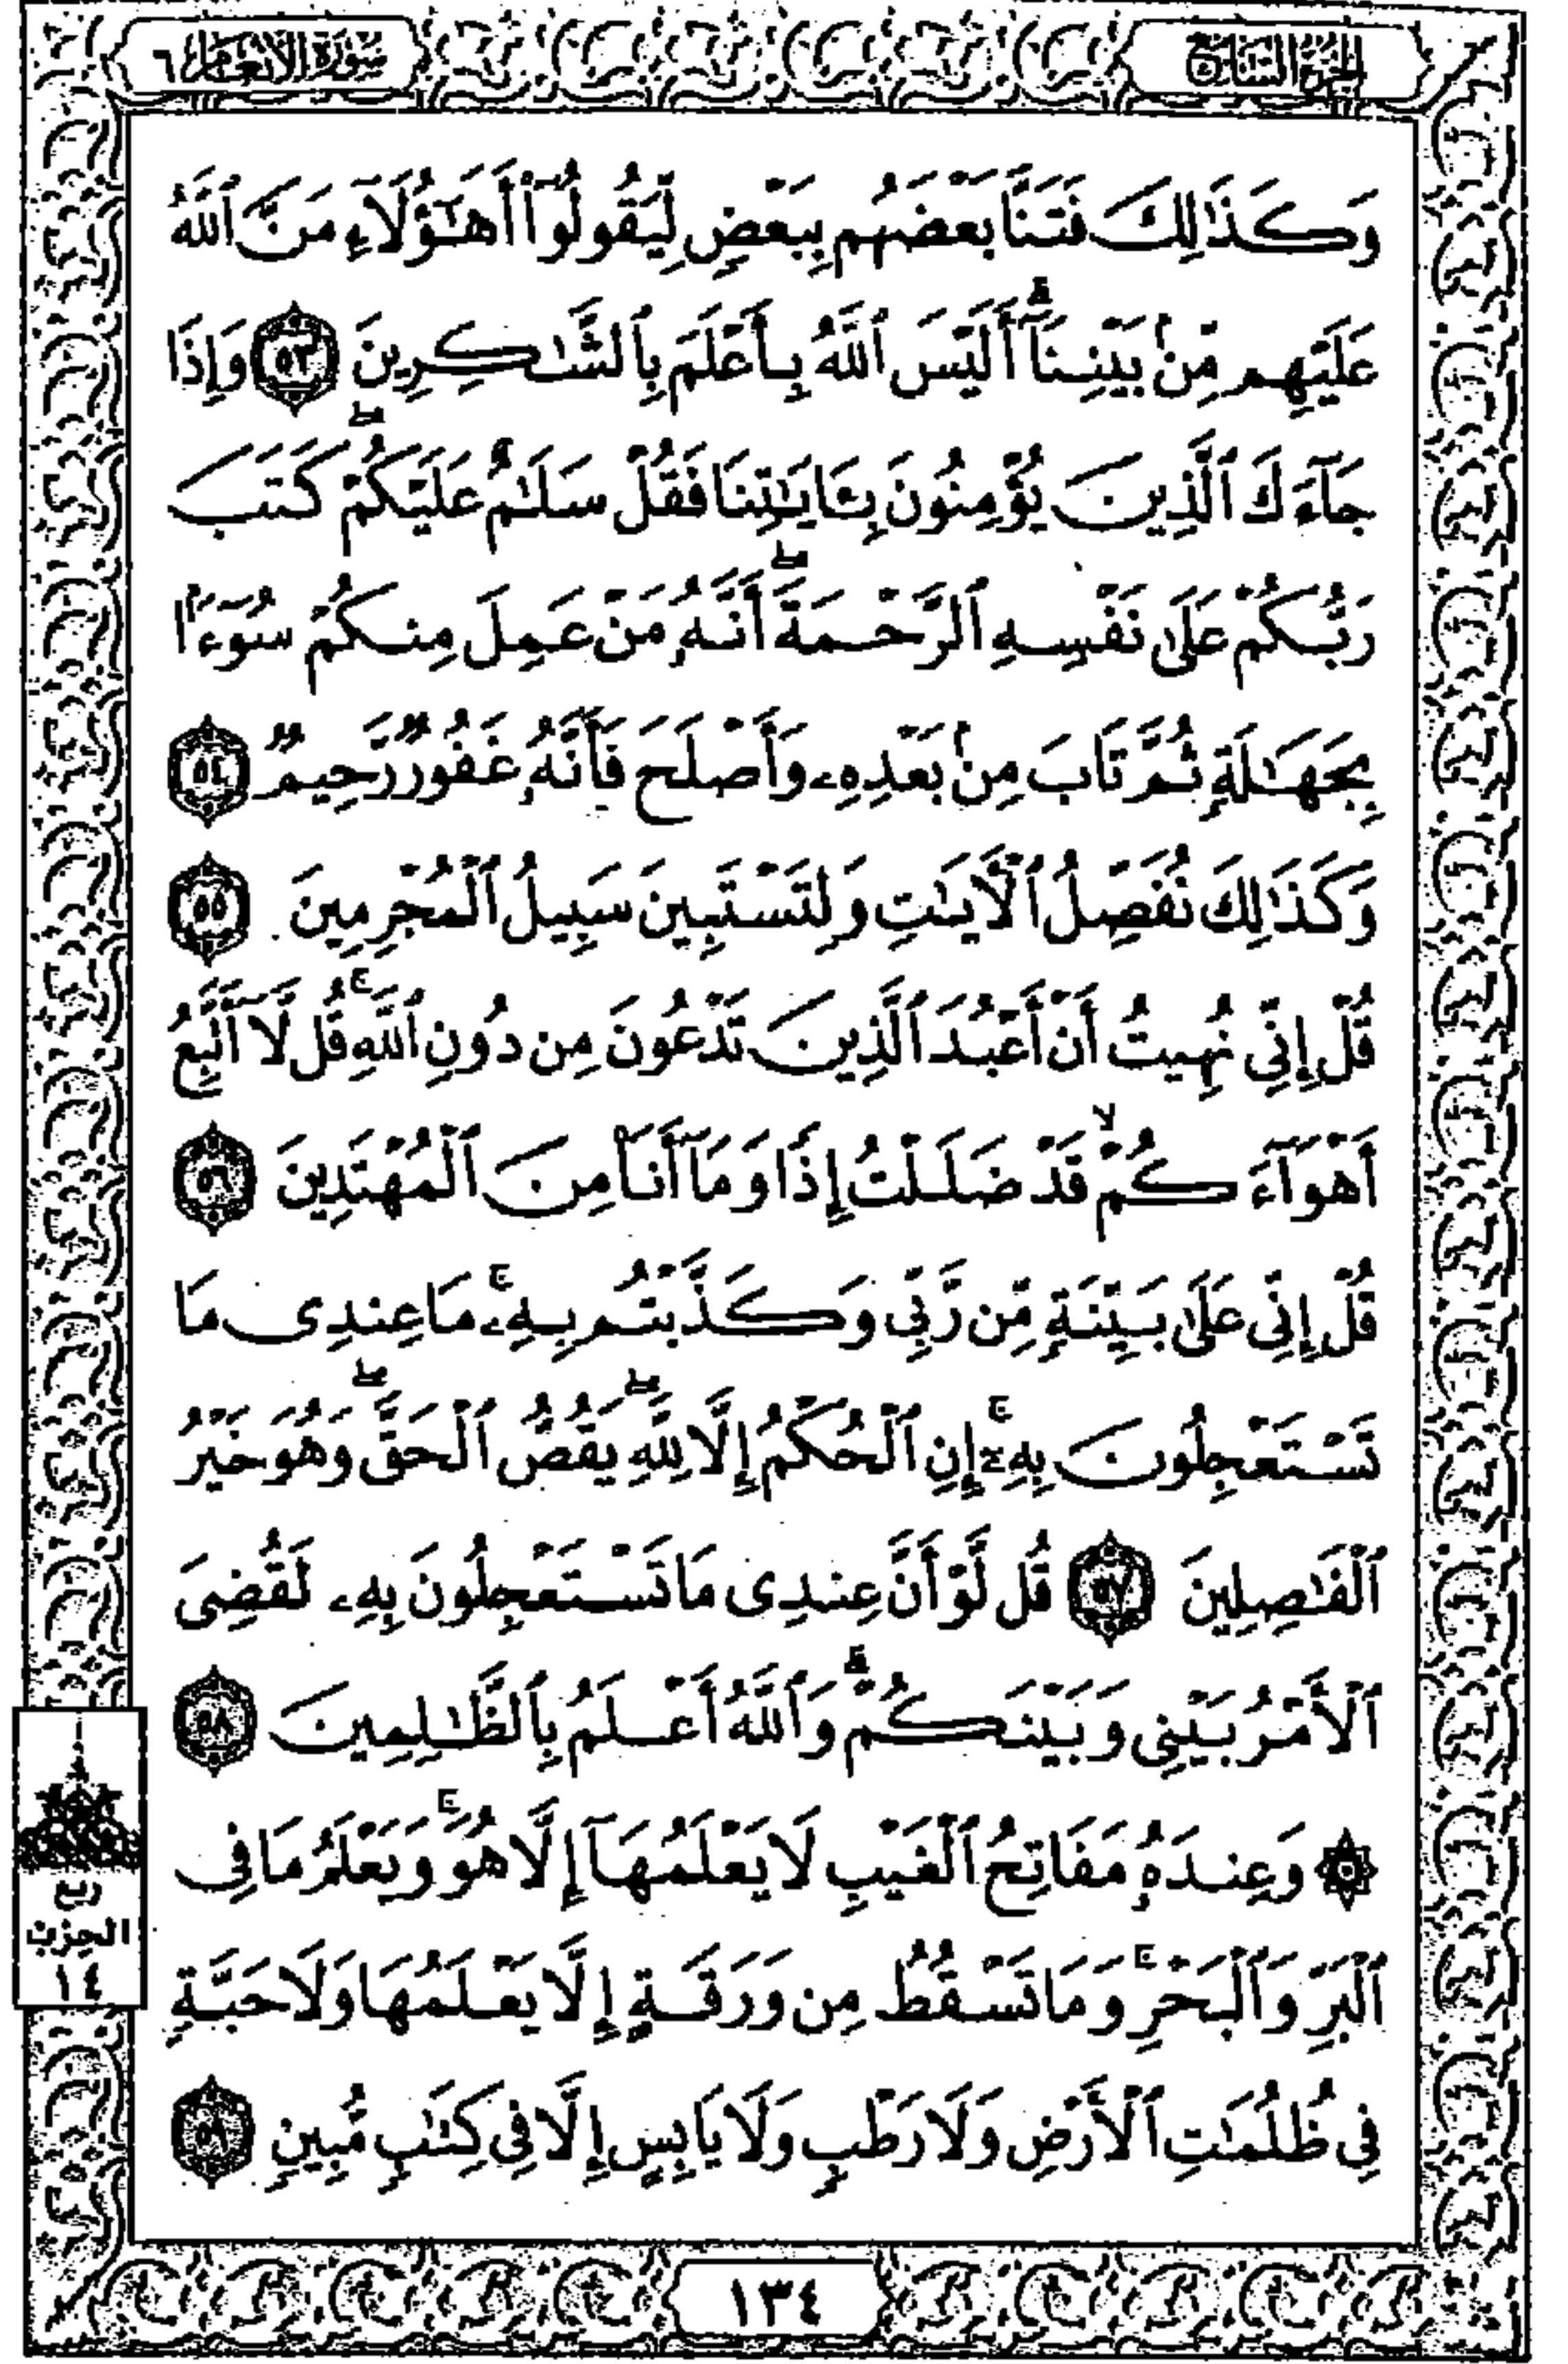 الجزء السابع
سورة الأنعام ٦
وَكَذَٰلِكَ فَتَنَّا بَعْضَهُم بِبَعْضٍ لِّيَقُولُوٓا۟ أَهَـٰٓؤُلَآءِ مَنَّ ٱللَّهُ
عَلَيْهِم مِّنۢ بَيْنِنَآ ۗ أَلَيْسَ ٱللَّهُ بِأَعْلَمَ بِٱلشَّـٰكِرِينَ ٥٣ وَإِذَا
جَآءَكَ ٱلَّذِينَ يُؤْمِنُونَ بِـَٔايَـٰتِنَا فَقُلْ سَلَـٰمٌ عَلَيْكُمْ ۖ كَتَبَ
رَبُّكُمْ عَلَىٰ نَفْسِهِ ٱلرَّحْمَةَ ۖ أَنَّهُۥ مَنْ عَمِلَ مِنكُمْ سُوٓءًۢا
بِجَهَـٰلَةٍ ثُمَّ تَابَ مِنۢ بَعْدِهِۦ وَأَصْلَحَ فَأَنَّهُۥ غَفُورٌ رَّحِيمٌ ٥٤
وَكَذَٰلِكَ نُفَصِّلُ ٱلْـَٔايَـٰتِ وَلِتَسْتَبِينَ سَبِيلُ ٱلْمُجْرِمِينَ ٥٥
قُلْ إِنِّى نُهِيتُ أَنْ أَعْبُدَ ٱلَّذِينَ تَدْعُونَ مِن دُونِ ٱللَّهِ ۚ قُل لَّآ أَتَّبِعُ
أَهْوَآءَكُمْ ۙ قَدْ ضَلَلْتُ إِذًا وَمَآ أَنَا۠ مِنَ ٱلْمُهْتَدِينَ ٥٦
قُلْ إِنِّى عَلَىٰ بَيِّنَةٍ مِّن رَّبِّى وَكَذَّبْتُم بِهِۦ ۚ مَا عِندِى مَا
تَسْتَعْجِلُونَ بِهِۦٓ ۚ إِنِ ٱلْحُكْمُ إِلَّا لِلَّهِ ۖ يَقُصُّ ٱلْحَقَّ ۖ وَهُوَ خَيْرُ
ٱلْفَـٰصِلِينَ ٥٧ قُل لَّوْ أَنَّ عِندِى مَا تَسْتَعْجِلُونَ بِهِۦ لَقُضِىَ
ٱلْأَمْرُ بَيْنِى وَبَيْنَكُمْ ۗ وَٱللَّهُ أَعْلَمُ بِٱلظَّـٰلِمِينَ ٥٨
۞ وَعِندَهُۥ مَفَاتِحُ ٱلْغَيْبِ لَا يَعْلَمُهَآ إِلَّا هُوَ ۚ وَيَعْلَمُ مَا فِى
ٱلْبَرِّ وَٱلْبَحْرِ ۚ وَمَا تَسْقُطُ مِن وَرَقَةٍ إِلَّا يَعْلَمُهَا وَلَا حَبَّةٍ
فِى ظُلُمَـٰتِ ٱلْأَرْضِ وَلَا رَطْبٍ وَلَا يَابِسٍ إِلَّا فِى كِتَـٰبٍ مُّبِينٍ ٥٩
ربع
الحزب
١٤
١٣٤